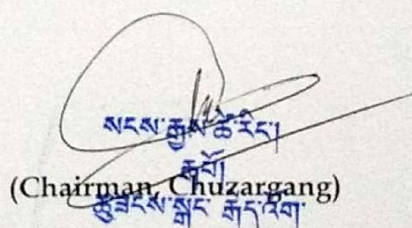 སངས་རྒྱས་ཚེ་རིང་།
རྒཔོ།
(Chairman, Chuzargang)
ཆུཟངས་སྒང་ རྒེད་འོག་